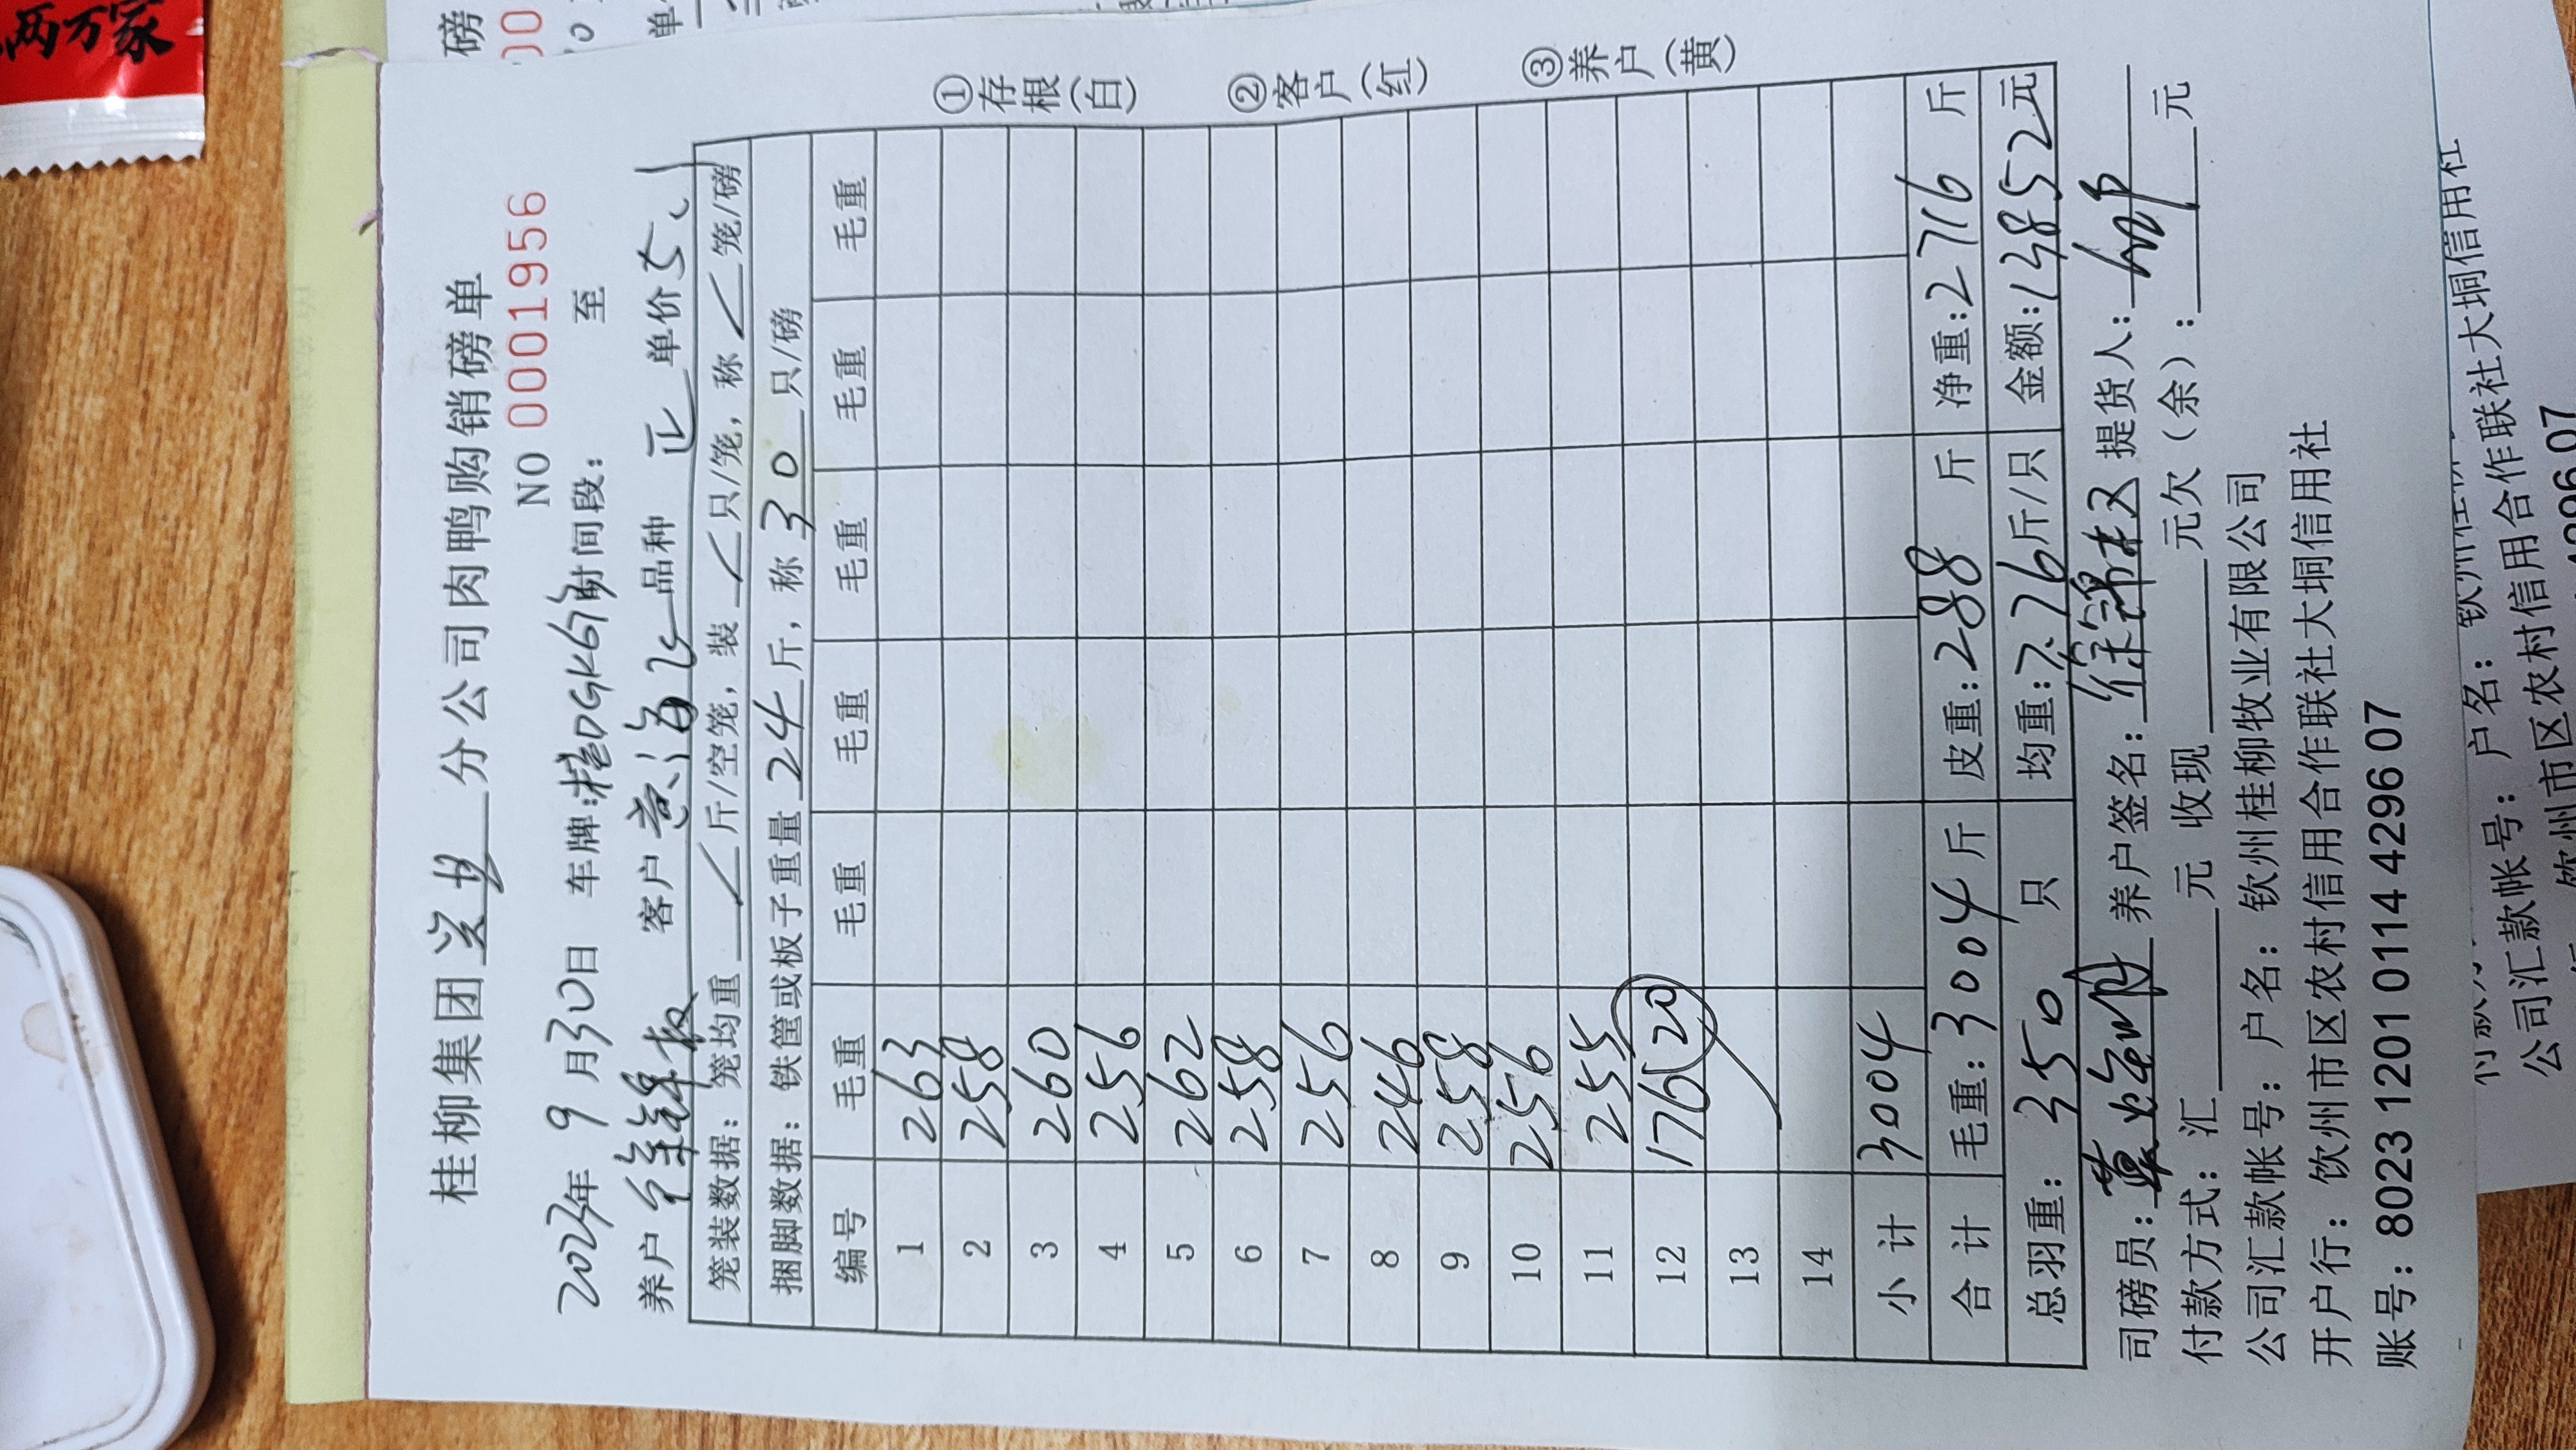 桂柳集团 分公司肉鸭购销磅单
NO 0001956
2023年 9月30日 车牌:桂DGK67 时间段: 至
养户 徐锦 客户 海飞 品种 正 单价 5.1
笼装数据: 笼均重 斤/空笼, 装 只/笼, 称 笼/磅
捆脚数据: 铁筐或板子重量 24 斤, 称 30 只/磅
编号 毛重 毛重 毛重 毛重 毛重 毛重
1 263
2 258
3 260
4 256
5 262
6 258
7 256
8 246
9 258
10 256
11 255
12 176 (20)
13
14
小计 3004
合计 毛重:3004斤 皮重:288 斤 净重:2716 斤
总羽重: 350 只 均重:7.76斤/只 金额:13852元
司磅员: 养户签名: 徐锦 提货人:
付款方式: 汇 元 收现 元欠(余): 元
公司汇款帐号: 户名: 钦州桂柳牧业有限公司
开户行: 钦州市区农村信用合作联社大垌信用社
账号: 8023 1201 0114 4296 07
①存根(白)
②客户(红)
③养户(黄)
两万家
磅
00
公司汇款帐号: 户名: 钦州
钦州市区农村信用合作联社大垌信用社
4296 07